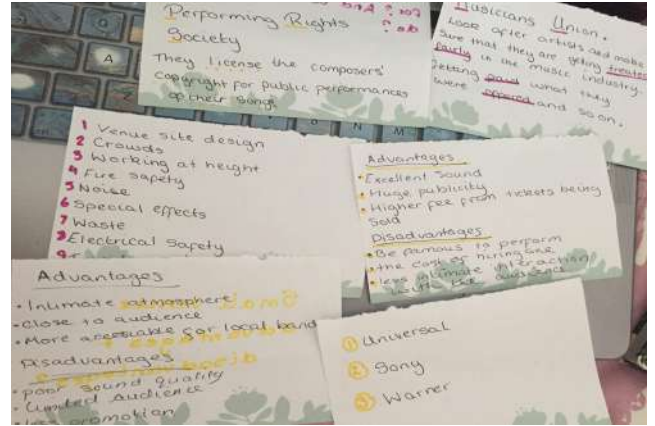 Performing Rights
Society
They license the composers'
copyright for public performances
of their songs
Musicians Union.
Look after artists and make
sure that they are getting treated
fairly in the music industry.
Getting paid what they
were offered and so on.
1 Venue site design
2 Crowds
3 Working at height
4 Fire safety
5 Noise
6 Special effects
7 Waste
8 Electrical safety
Advantages
• Excellent sound
• Huge publicity
• Higher fee from tickets being
sold
Disadvantages
• Be famous to perform
• the cost of hiring
• less intimate interaction
with the audience
Advantages
• Intimate atmosphere
• Close to audience
• More accessible for local band
Disadvantages
• poor sound quality
• Limited audience
• less promotion
1 Universal
2 Sony
3 Warner